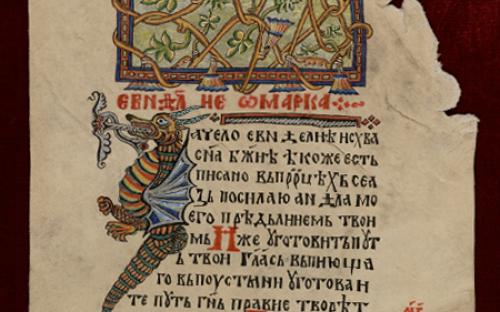 ЕВН҃Л НЕ Ѡ МАРКА
АЧЕЛО ЕВН҃ЛНѢ ИС ХВА
СН҃А БЖ҃НѢ ѢКОЖЕ ЕСТЬ
ПИСАНО ВЪ ПРР҃ЦѢХ СЕ А
ЗЪ ПОСЫЛАЮ АНГ҃ЛА МО
ЕГО ПРѢДЬ ЛИЦЕМЬ ТВОИ
МЬ ИЖЕ УГОТОВИТЬ ПУТ
Ь ТВОИ ГЛАСЬ ВЬПИЮЩА
ГО В ПОУСТЫНИ УГОТОВАИ
ТЕ ПУТЬ ГН҃Ь ПРАВИЕ ТВОРѢТ